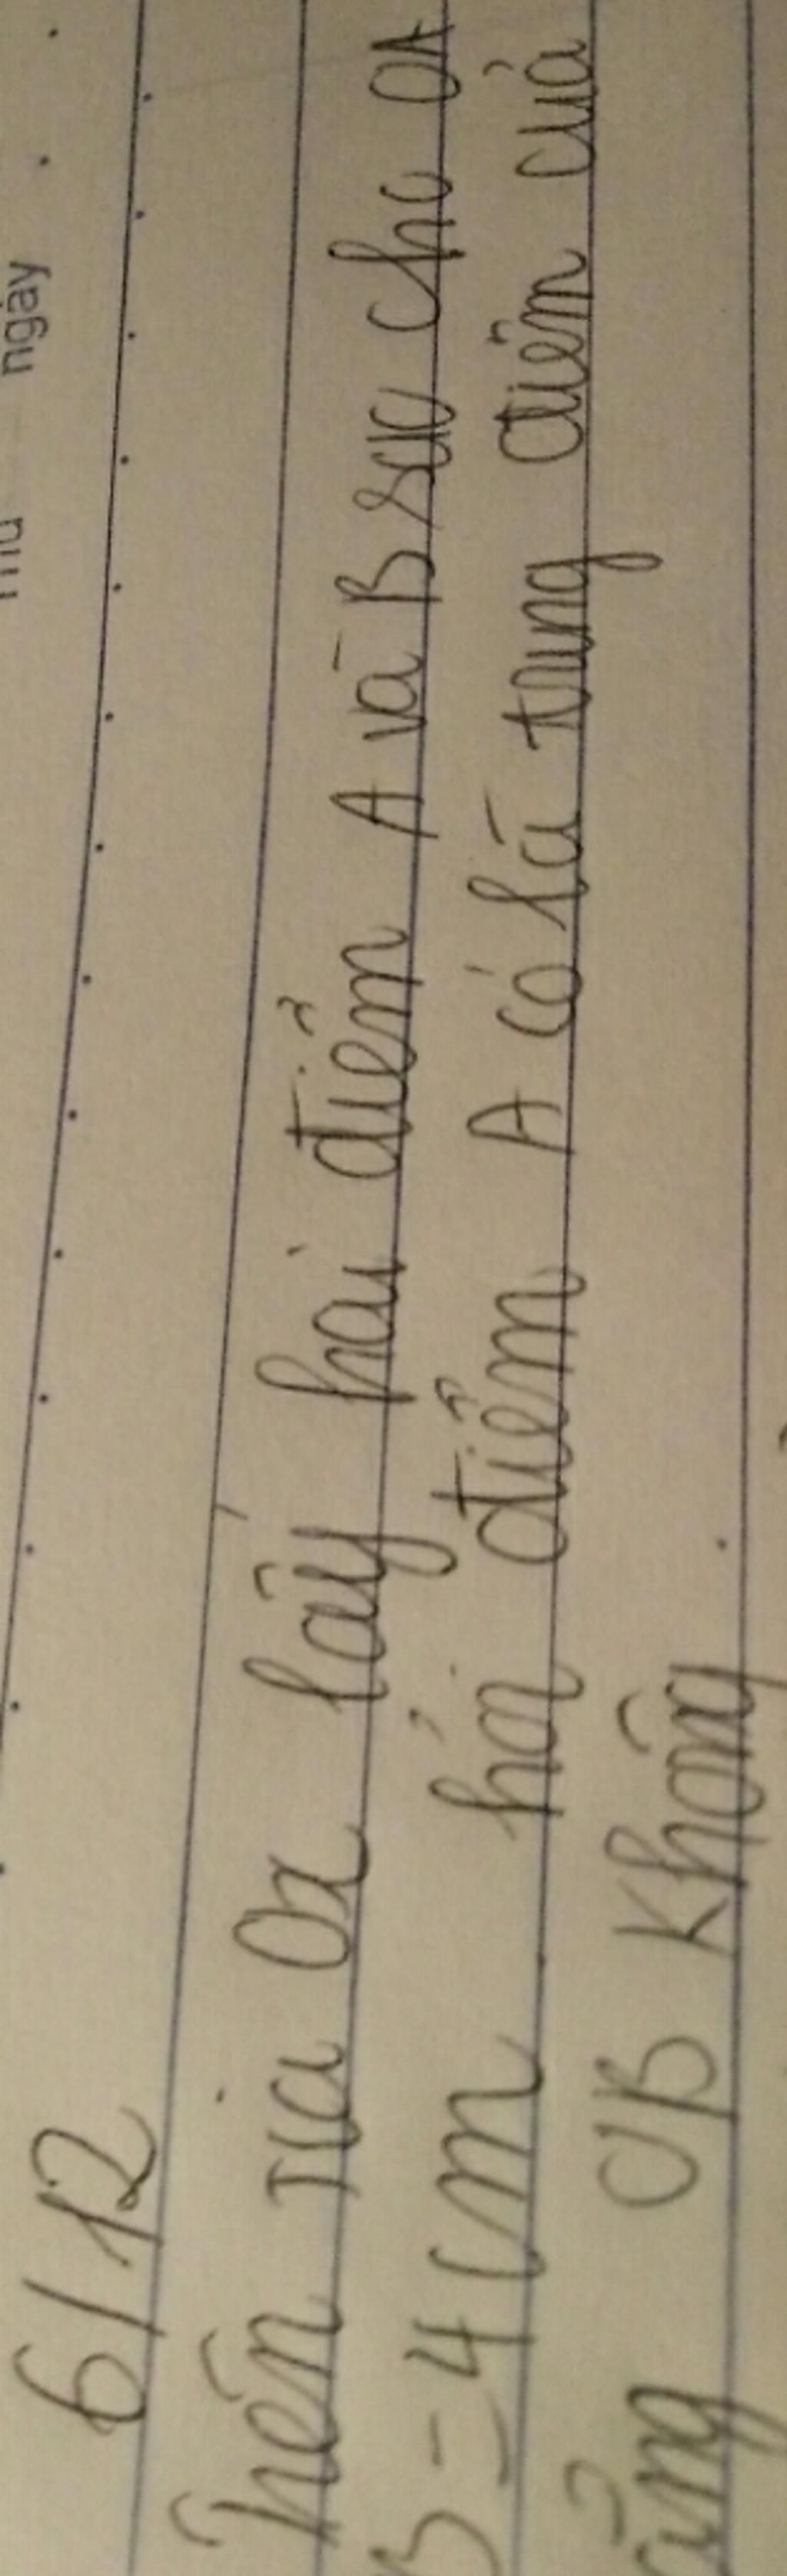 ngày
6/12
Trên tia Ox lấy hai điểm A và B sao cho OA
B = 4cm hỏi điểm A có là trung điểm của
ẳng OB không